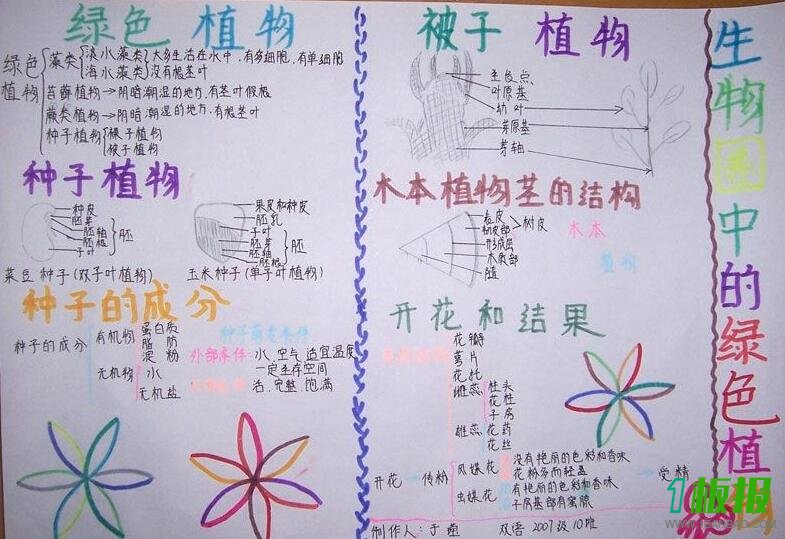 绿色 植物
绿色植物
藻类
淡水藻类
海水藻类
大多生活在水中,有多细胞,有单细胞
没有根茎叶
苔藓植物→阴暗潮湿的地方,有茎叶假根
蕨类植物→阴暗潮湿的地方,有根茎叶
种子植物
被子植物
种子植物
种皮
胚芽
胚轴
胚根
子叶
胚
菜豆种子(双子叶植物)
果皮和种皮
胚乳
子叶
胚芽
胚轴
胚根
胚
玉米种子(单子叶植物)
种子的成分
种子的成分
有机物
蛋白质
脂肪
淀粉
无机物
水
无机盐
种子萌发条件
外部条件:水、空气、适宜温度
一定生存空间
活、完整、饱满
被子 植物
生长点
叶原基
幼叶
芽原基
芽轴
木本植物茎的结构
韧皮部
树皮
形成层
木质部
髓
木本
植物
开花和结果
花瓣
萼片
花托
雌蕊
柱头
花柱
子房
雄蕊
花药
花丝
开花
传粉
风媒花
没有艳丽的色彩和香味
花粉多而轻盈
虫媒花
有艳丽的色彩和香味
子房基部有蜜腺
受精
制作人:于蕴 双语2007级10班
生物圈中的绿色植物
1板报